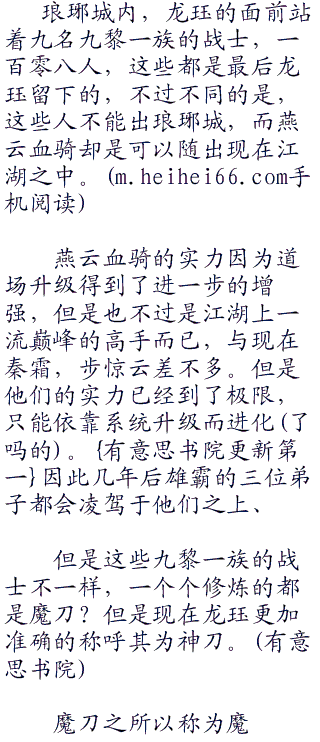 琅琊城内，龙珏的面前站
着九名九黎一族的战士，一
百零八人，这些都是最后龙
珏留下的，不过不同的是，
这些人不能出琅琊城，而燕
云血骑却是可以随出现在江
湖之中。(m.heihei66.com手
机阅读)
燕云血骑的实力因为道
场升级得到了进一步的增
强，但是也不过是江湖上一
流巅峰的高手而已，与现在
秦霜，步惊云差不多。但是
他们的实力已经到了极限，
只能依靠系统升级而进化(了
吗的)。{有意思书院更新第
一}因此几年后雄霸的三位弟
子都会凌驾于他们之上、
但是这些九黎一族的战
士不一样，一个个修炼的都
是魔刀？但是现在龙珏更加
准确的称呼其为神刀。(有意
思书院)
魔刀之所以称为魔